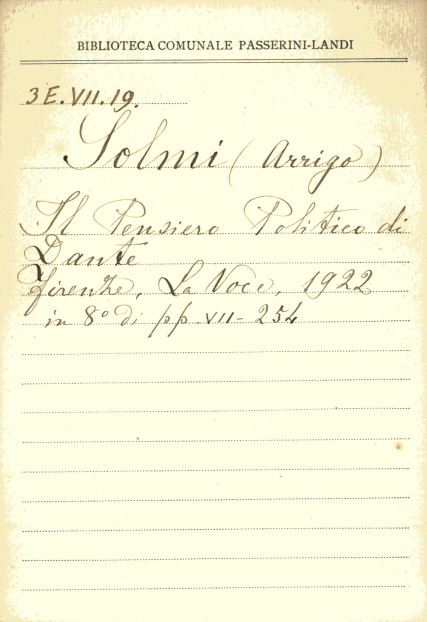 BIBLIOTECA COMUNALE PASSERINI-LANDI
3 E. VII. 19.
Solmi (Arrigo)
Il Pensiero Politico di
Dante
Firenze, La Voce, 1922
in 8º di pp. VII - 254